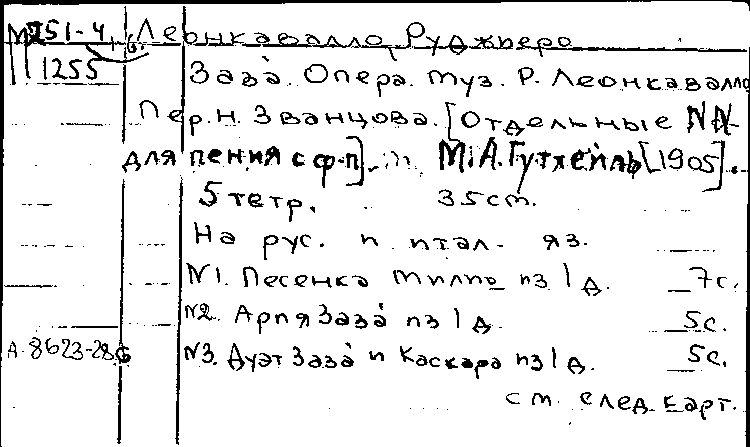 М251-4 Леонкавалло, Руджьеро
1255 Заза́. Опера. Муз. Р. Леонкавалло
Пер. Н. Званцова. [Отдельные NN-
для пения с ф-п]. М. А. Гутхейль [1905].
5 тетр. 35 см.
На рус. и итал. яз.
N1. Песенка Милио из I д. 7с.
N2. Ария Заза́ из I д. 5с.
А-8623-28 N3. Дуэт Заза́ и Каскара из I д. 5с.
см. след. карт.